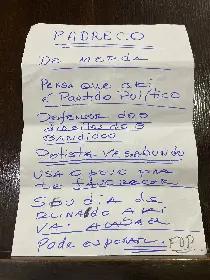 PADRECO
De MERDA
PENSA QUE AQUI
É PARTIDO POLÍTICO
DEFENSOR DOS
DIREITOS DOS
BANDIDO
PETISTA VAGABUNDO
USA O POVO PARA
SE FAVORECER
SEU DIA DE
REINADO AQUI
VAI ACABAR
Pode esperar.